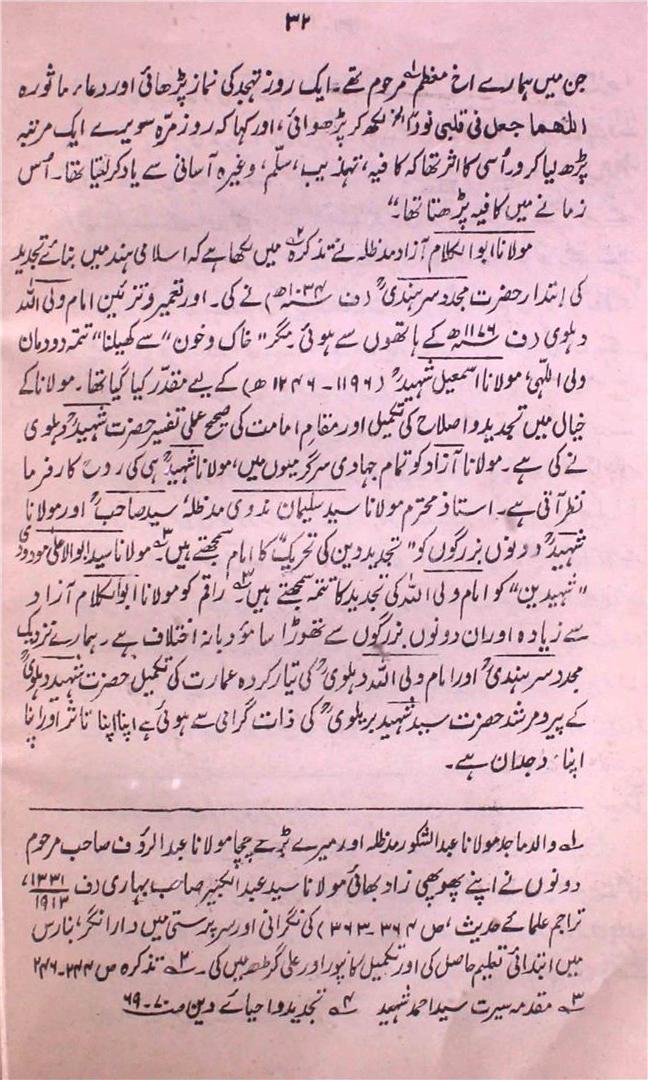 ۳۲
جن میں ہمارے اخ معظمؒ ۱؎ مرحوم تھے۔ ایک روز تہجد کی نماز پڑھائی اور دعاء ماثورہ
اللھما جعل فی قلبی نوراً الخ لکھ کر پڑھوائی، اور کہا کہ روزمرّہ سویرے ایک مرتبہ
پڑھ لیا کرو۔ اُسی کا اثر تھا کہ کافیہ، تہذیب، سلّم، وغیرہ آسانی سے یاد کر لیتا تھا۔ اُس
زمانے میں کافیہ پڑھتا تھا۔“
مولانا ابوالکلام آزاد مدظلہ نے تذکرہ ۲؎ میں لکھا ہے کہ اسلامی ہند میں بنائے تجدید
کی ابتداء حضرت مجدد سرہندیؒ (ف ۱۰۳۴ھ) نے کی۔ اور تعمیر و تزئین امام ولی اللہ
دہلوی (ف ۱۱۷۶ھ) کے ہاتھوں سے ہوئی۔ مگر ”خاک و خون“ سے کھیلنا ”تتمہ دودمان
ولی اللّٰہی، مولانا اسمعیل شہیدؒ (۱۱۹۶ - ۱۲۴۶ ھ) کے لیے مقدّر کیا گیا تھا۔ مولانا کے
خیال میں تجدید و اصلاح کی تکمیل اور مقامِ امامت کی صحیح عملی تفسیر حضرت شہیدؒ دہلوی
نے کی ہے۔ مولانا آزاد کو تمام جہادی سرگرمیوں میں، مولانا شہیدؒ ہی کی روح کارفرما
نظر آتی ہے۔ استاذ محترم مولانا سید سلیمان ندوی مدظلہٗ سید صاحبؒ اور مولانا
شہیدؒ دونوں بزرگوں کو ”تجدید دین کی تحریک“ کا امام سمجھتے ہیں ۳؎۔ مولانا سید ابوالاعلیٰ مودودی
”شہیدین“ کو امام ولی اللہ کی تجدید کا تتمہ سمجھتے ہیں ۴؎۔ راقم کو مولانا ابوالکلام آزاد
سے زیادہ اور ان دونوں بزرگوں سے تھوڑا سا مؤدبانہ اختلاف ہے۔ ہمارے نزدیک
مجدد سرہندیؒ اور امام ولی اللہ دہلویؒ کی تیار کردہ عمارت کی تکمیل حضرت شہید دہلویؒ
کے پیر و مرشد حضرت سید شہید بریلویؒ کی ذات گرامی سے ہوئی ہے اپنا اپنا تاثر اور اپنا
اپنا وجدان ہے۔
۱؎ والد ماجد مولانا عبدالشکور مدظلہ اور میرے بڑے چچا مولانا عبدالرؤف صاحب مرحوم
دونوں نے اپنے پھوپھی زاد بھائی مولانا سید عبدالکبیر صاحب بہاری (ف ۱۳۳۱/۱۹۱۳ء،
تراجم علمائے حدیث، ص ۳۶۴-۳۶۳) کی نگرانی اور سرپرستی میں دارانگر، بنارس
میں ابتدائی تعلیم حاصل کی اور تکمیل کانپور اور علی گڑھ میں کی۔ ۲؎ تذکرہ ص ۲۴۴-۲۴۶
۳؎ مقدمہ سیرت سید احمد شہید ۴؎ تجدید و احیائے دین ص ۷۰-۶۹